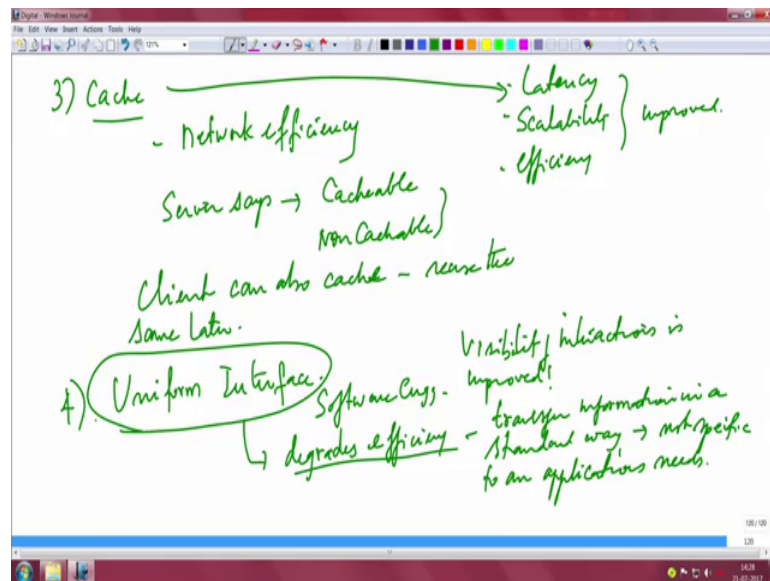 Digital - Windows Journal
File Edit View Insert Actions Tools Help
121%
3) Cache
- Latency
- Scalability
- efficiency
improved.
- Network efficiency
Server says → Cacheable
Non Cachable
Client can also cache - reuse the
same later.
4) Uniform Interface.
Software Engg.
Visibility of interactions is
improved!
degrades efficiency - transfer information in a
standard way → not specific
to an applications needs.
120 / 120
120
14:28
21-07-2017